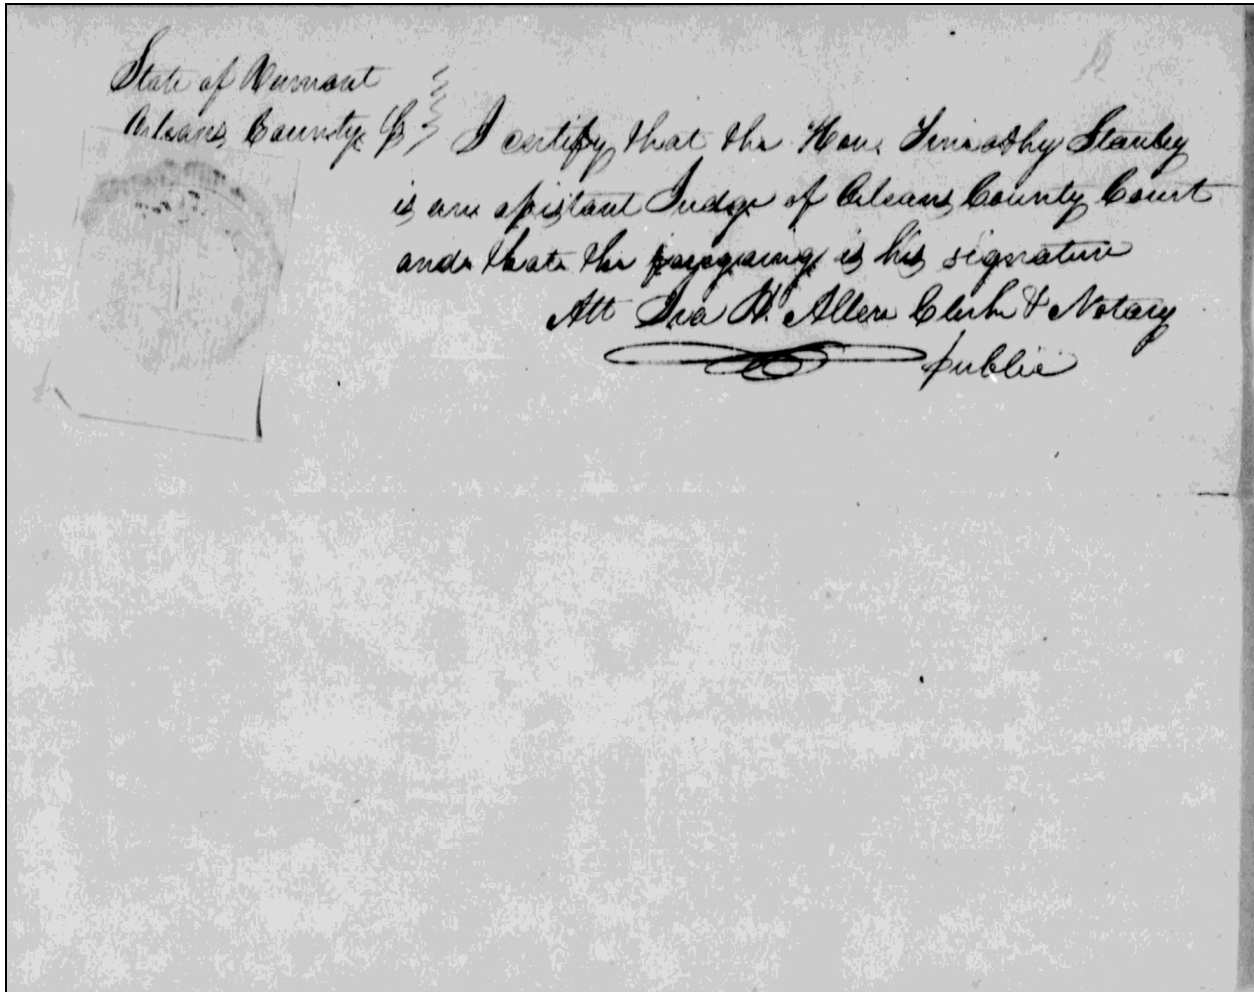 State of Vermont
Orleans County Ss } I certify that the Hon. Timothy Stanley
is an assistant Judge of Orleans County Court
and that the foregoing is his signature
Att Ira H. Allen Clerk & Notary
public